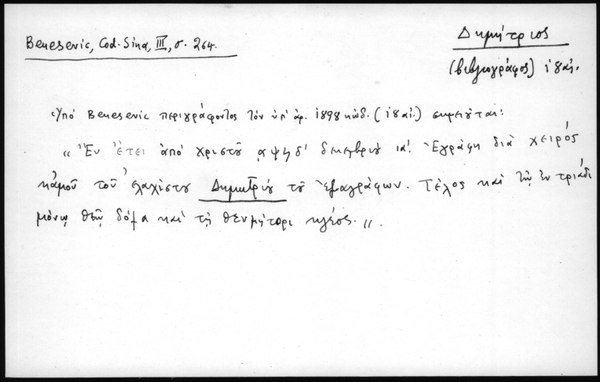 Benesevic, Cod. Sina, III, σ. 264.
Δημήτριος
(βιβλιογράφος) ιη΄ αἰ.
Ὑπό Benesevic περιγράφοντος τὸν ὑπ' ἀρ. 1898 κώδ. (ιη΄ αἰ.) σημειοῦται:
"Ἐν ἔτει ἀπό χριστοῦ αψηδ' δεκεμβρίου ια'. Ἐγράφη διά χειρός
κἀμοῦ τοῦ ἐλαχίστου Δημητρίου τοῦ . Τέλος καί τῷ ἐν τριάδι
μόνῳ θεῷ δόξα καί τῇ θεομήτορι κλέος."